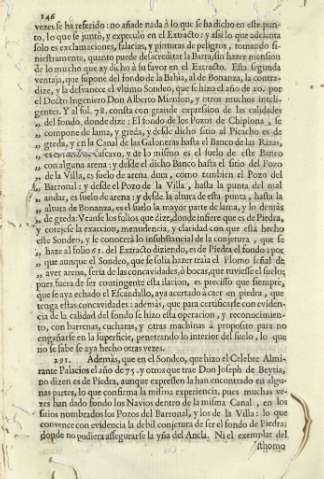 246
vezes se ha referido: no añade nada à lo que se ha dicho en este pun-
to, lo que se juntò, y expecuło en el Extracto: y assi lo que adelanta
solo es exclamaciones, falacias, y pinturas de peligros, tomando si-
niestramente, quanto puede desacreditar la Barra, sin hazer mension
de lo mucho que ay dicho à su favor en el Extracto. Esta segunda
ventaja, que supone del fondo de la Bahia, al de Bonanza, la contra-
dize, y la desvanece el vltimo Sondeo, que se hizo el año de 20. por
el Docto Ingeniero Don Alberto Mandon, y otros muchos inteli-
gentes. Y al fol. 78. consta con grande expression de las calidades
del fondo, donde dize: El fondo de los Pozos de Chipiona, se
„ compone de lama, y greda, y desde dicho sitio al Picacho es de
„ greda, y en la Canal de las Galoneras hasta el Banco de las Razas,
„ es y de lo mismo es el suelo de este Banco
„ con alguna arena: y desde el dicho Banco hasta el sitio del Pozo
„ de la Villa, es suelo de arena dura, como tambien el Pozo del
„ Barronal: y desde el Pozo de la Villa, hasta la punta del mal
„ andar, es suelo de arena; y desde la altura de esta punta, hasta la
„ altura de Bonanza, es el suelo la mayor parte de lama, y lo demàs
„ de greda: Veanse los folios que dize, donde infiere que es de Piedra,
y cotejese la exaccion, menudencia, y claridad con que està hecho
este Sondeo, y se conocerà lo insubstancial de la conjetura, que se
haze al folio 61. del Extracto diziendo, es de Piedra el fondo: por
que aunque el Sondeo, que se solia hazer traìa el Plomo señal de
„ aver arena, seria de las concavidades, ò bocas, que tuviesse el suelo;
pues fuera de ser contingente esta ilacion, es preciso que siempre,
que se aya echado el Escandallo, aya acertado à caer en piedra, que
tenga estas concavidades: ademàs, que para certificarse con eviden-
cia de la calidad del fondo se hizo esta operacion, y reconocimien-
to, con barrenas, cucharas, y otras machinas à proposito para no
engañarse en la superficie, penetrando lo interior del suelo, lo que
no se sabe se aya hecho otras vezes.
291. Ademàs, que en el Sondeo, que hizo el Celebre Almi-
rante Palacios el año de 75. y otros que trae Don Joseph de Beytia,
no dizen es de Piedra, aunque expressen la han encontrado en algu-
nas partes, lo que confirma la misma experiencia, pues muchas ve-
zes han dado fondo los Navios dentro de la misma Canal, en los
sitios nombrados los Pozos del Barronal, y los de la Villa: lo que
convence con evidencia la debil conjetura de ser el fondo de Piedra;
donde no pudiera assegurarse la vña del Ancla. Ni el exemplar del
sthomo